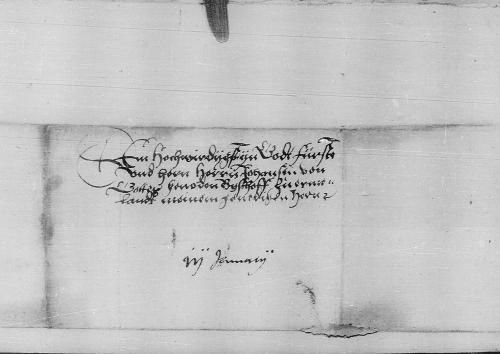 Dem Hochwirdigsten in Godt fürste
und hern Hern Johansen von
Gottes genaden Bysthoff zu Erme=
landt meinem genedigen Hern
iij January